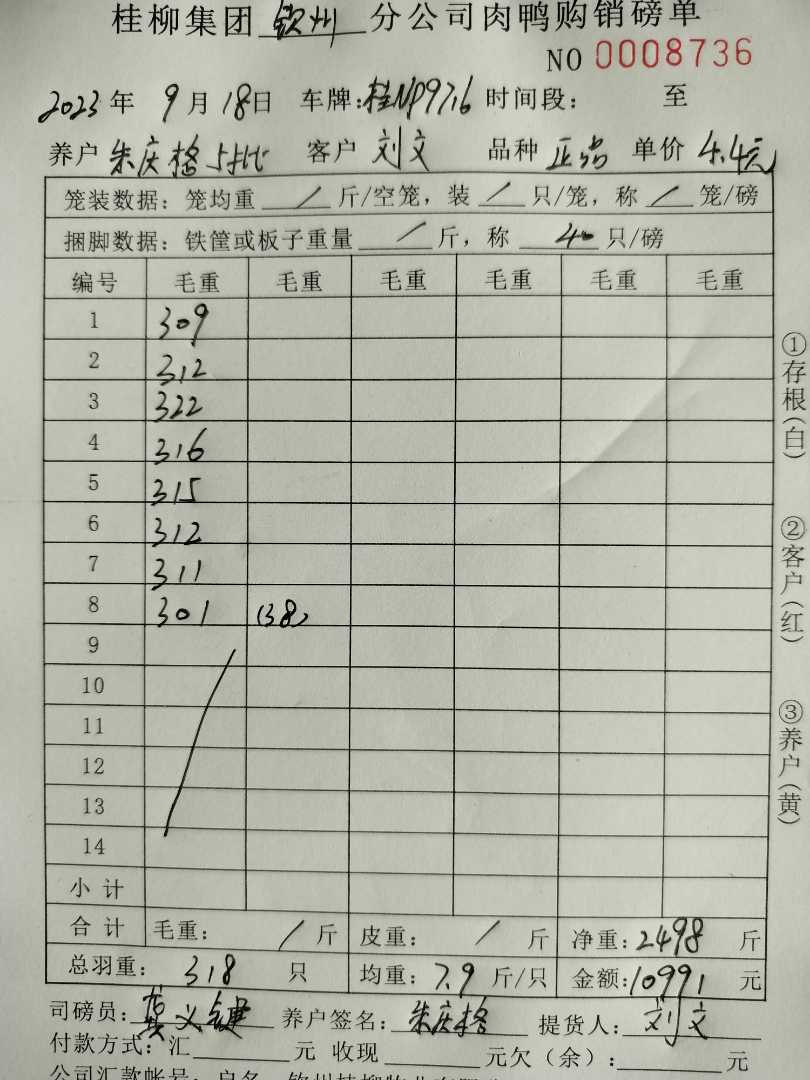 桂柳集团 钦州 分公司肉鸭购销磅单
NO 0008736
2023 年 9 月 18日 车牌:桂NP9716 时间段: 至
养户 朱庆格 客户 刘文 品种 正品 单价 4.4元
笼装数据: 笼均重 / 斤/空笼, 装 / 只/笼, 称 / 笼/磅
捆脚数据: 铁筐或板子重量 / 斤, 称 40 只/磅
编号 毛重 毛重 毛重 毛重 毛重 毛重
1 309
2 312
3 322
4 316
5 315
6 312
7 311
8 301 (38)
9
10
11
12
13
14
小计
合计 毛重: / 斤 皮重: / 斤 净重:2498 斤
总羽重: 318 只 均重: 7.9 斤/只 金额:10991 元
司磅员: 养户签名: 朱庆格 提货人: 刘文
付款方式: 汇 元 收现 元欠(余): 元
①存根(白)
②客户(红)
③养户(黄)